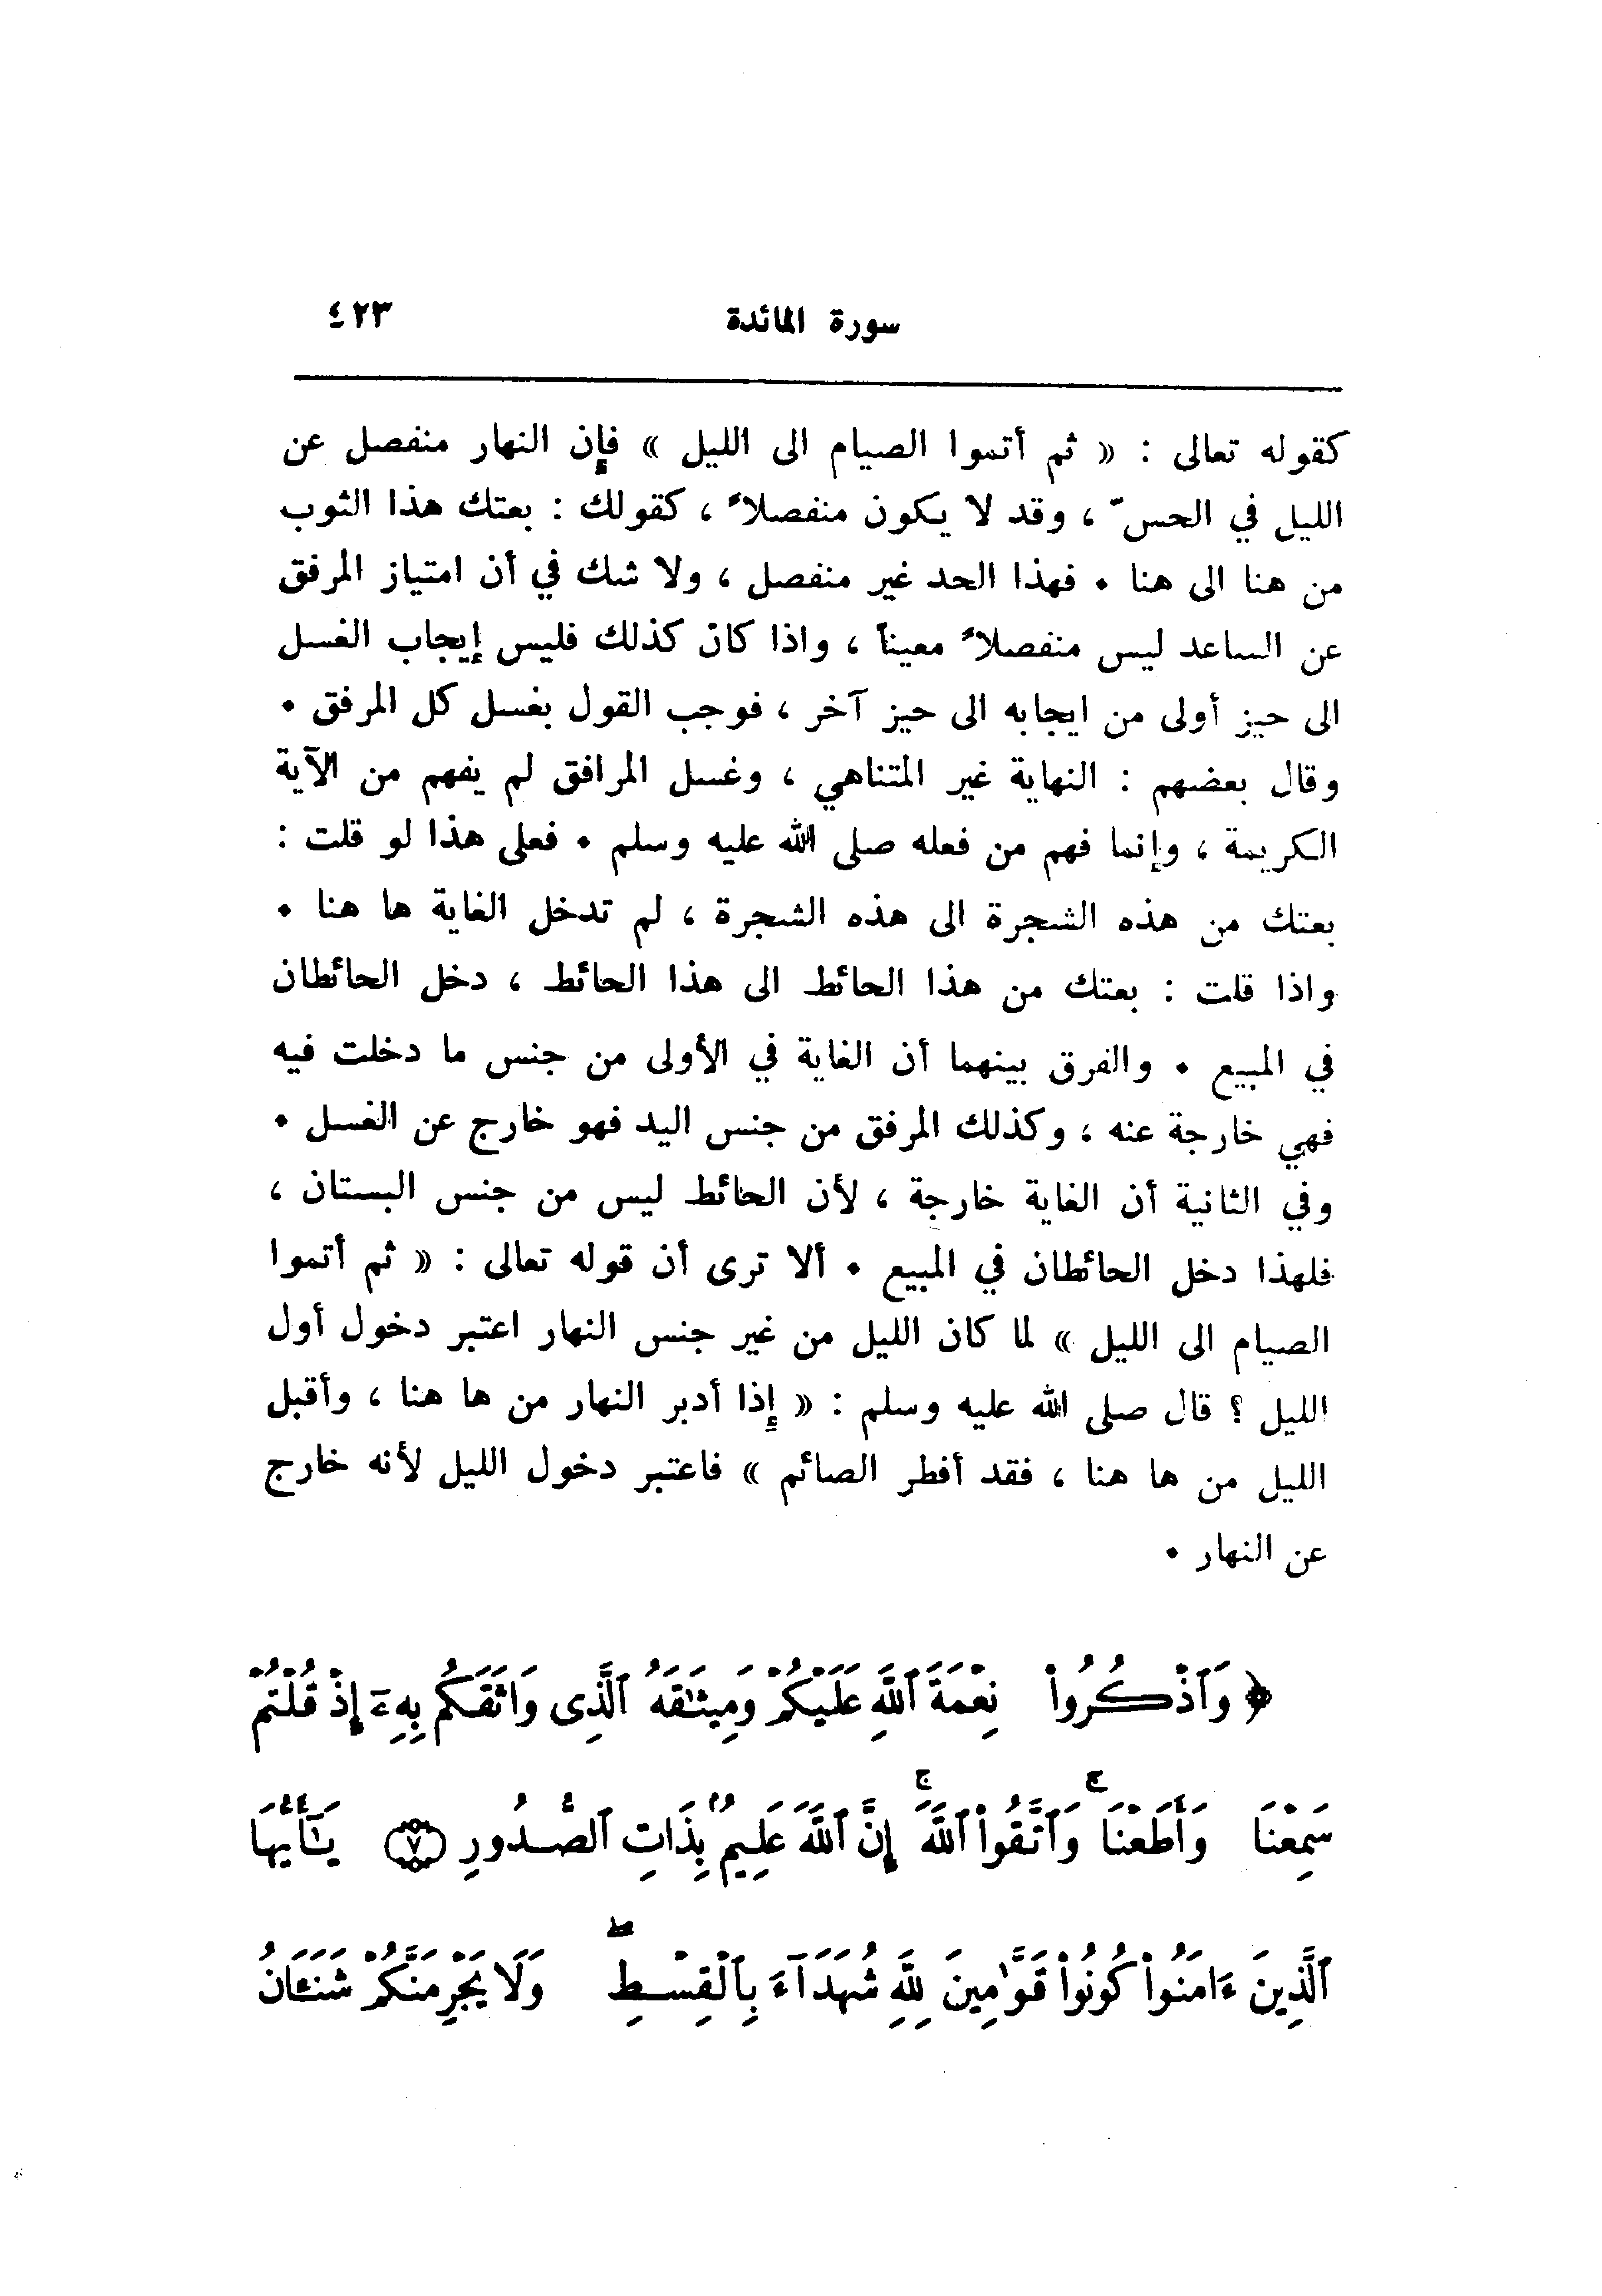 سورة المائدة ٤٢٣
كقوله تعالى : « ثم أتموا الصيام الى الليل » فإن النهار منفصل عن
الليل في الحسّ ، وقد لا يكون منفصلاً ، كقولك : بعتك هذا الثوب
من هنا الى هنا . فهذا الحد غير منفصل ، ولا شك في أن امتياز المرفق
عن الساعد ليس منفصلاً معيناً ، واذا كان كذلك فليس إيجاب الغسل
الى حيز أولى من ايجابه الى حيز آخر ، فوجب القول بغسل كل المرفق .
وقال بعضهم : النهاية غير المتناهي ، وغسل المرافق لم يفهم من الآية
الكريمة ، وإنما فهم من فعله صلى الله عليه وسلم . فعلى هذا لو قلت :
بعتك من هذه الشجرة الى هذه الشجرة ، لم تدخل الغاية ها هنا .
واذا قلت : بعتك من هذا الحائط الى هذا الحائط ، دخل الحائطان
في المبيع . والفرق بينهما أن الغاية في الأولى من جنس ما دخلت فيه
فهي خارجة عنه ، وكذلك المرفق من جنس اليد فهو خارج عن الغسل .
وفي الثانية أن الغاية خارجة ، لأن الحائط ليس من جنس البستان ،
فلهذا دخل الحائطان في المبيع . ألا ترى أن قوله تعالى : « ثم أتموا
الصيام الى الليل » لما كان الليل من غير جنس النهار اعتبر دخول أول
الليل ؟ قال صلى الله عليه وسلم : « إذا أدبر النهار من ها هنا ، وأقبل
الليل من ها هنا ، فقد أفطر الصائم » فاعتبر دخول الليل لأنه خارج
عن النهار .
﴿ وَٱذْكُرُوا۟ نِعْمَةَ ٱللَّهِ عَلَيْكُمْ وَمِيثَٰقَهُ ٱلَّذِى وَاثَقَكُم بِهِۦٓ إِذْ قُلْتُمْ
سَمِعْنَا وَأَطَعْنَا ۚ وَٱتَّقُوا۟ ٱللَّهَ ۚ إِنَّ ٱللَّهَ عَلِيمٌۢ بِذَاتِ ٱلصُّدُورِ ﴿٧﴾ يَٰٓأَيُّهَا
ٱلَّذِينَ ءَامَنُوا۟ كُونُوا۟ قَوَّٰمِينَ لِلَّهِ شُهَدَآءَ بِٱلْقِسْطِ ۖ وَلَا يَجْرِمَنَّكُمْ شَنَـَٔانُ